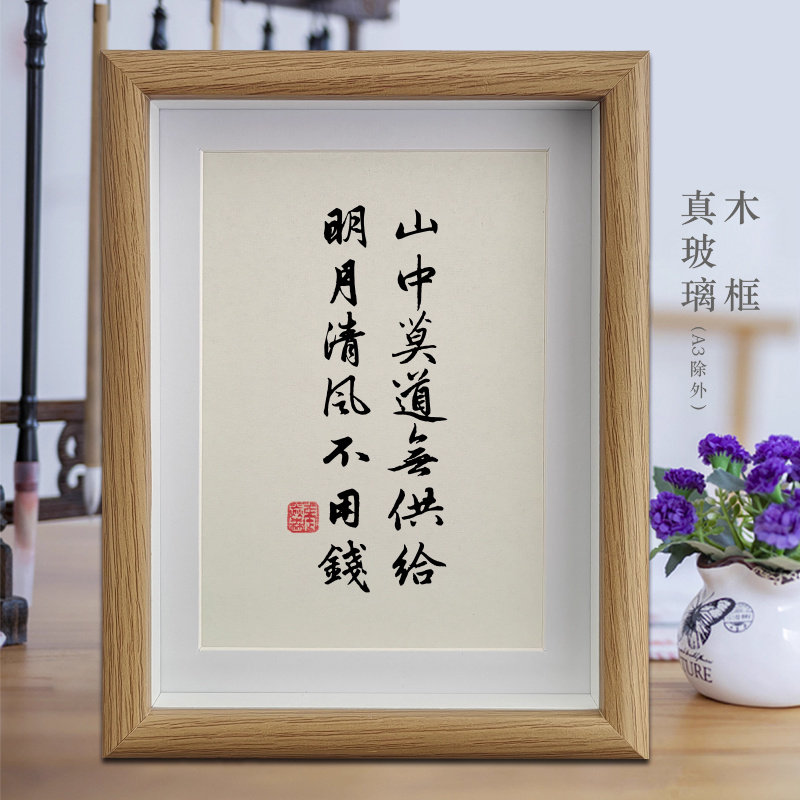 山中莫道無供给
明月清风不用錢
木框
真玻璃(A3除外)
TURE